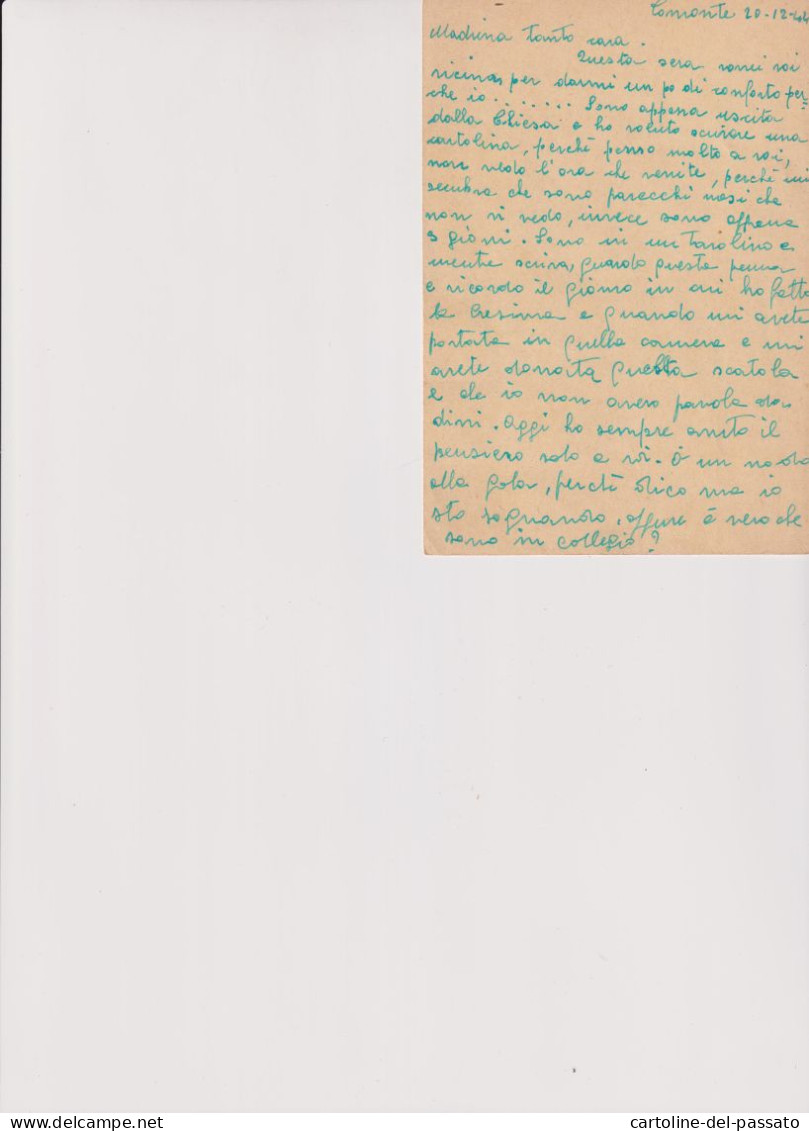 Comonte 20-12-44
Madrina tanto cara.
Questa sera vorrei voi
vicina per darmi un po di conforto per-
che io . . . . . . . Sono appena uscita
dalla Chiesa e ho voluto scrivere una
cartolina, perchè penso molto a voi,
non vedo l'ora che venite, perchè mi
sembra che sono parecchi mesi che
non vi vedo, invece sono appena
3 giorni. Sono in un tavolino e
mentre scrivo, guardo questa penna
e ricordo il giorno in cui ho fatto
la Cresima e quando mi avete
portata in quella camera e mi
avete donata questa scatola
e che io non avevo parola da
dirvi. Oggi ho sempre avuto il
pensiero solo a voi. O un nodo
alla gola, perchè dico ma io
sto sognando, oppure è vero che
sono in collegio?
cartoline-del-passato